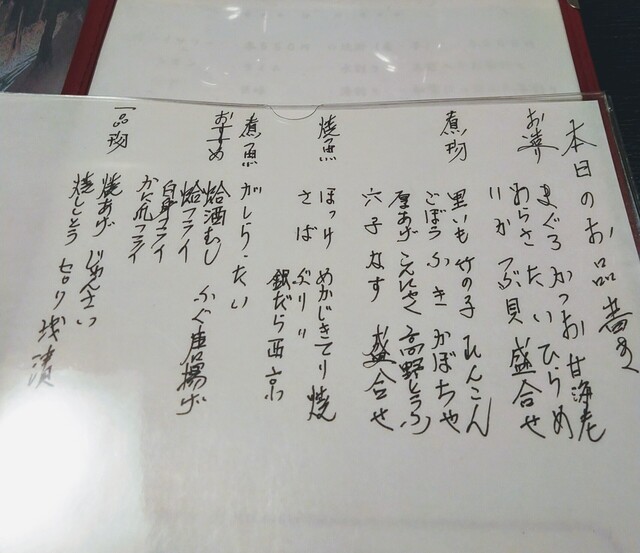 本日のお品書き
お造り
まぐろ かつお 甘海老
わらさ たい ひらめ
いか つぶ貝 盛合せ
煮物
里いも 竹の子 れんこん
ごぼう ふき かぼちゃ
厚あげ こんにゃく 高野とうふ
六子なす 盛合せ
焼魚
ほっけ めかじきてり焼
さば ぶり〃
銀だら西京
煮魚
がしら・たい
おすすめ
蛤酒むし ふぐ唐揚げ
蛤フライ
白身フライ
かに爪フライ
一品物
焼あげ じゅんさい
焼しとう セロリ浅漬